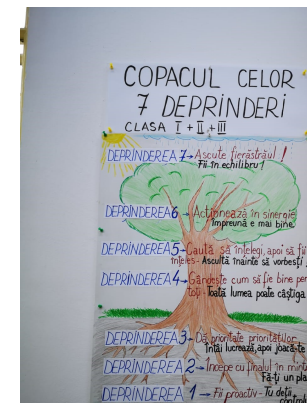 COPACUL CELOR
7 DEPRINDERI
CLASA I + II + III
DEPRINDEREA 7 - Ascute fierăstrăul!
Fii în echilibru!
DEPRINDEREA 6 - Acționează în sinergie
Împreună e mai bine
DEPRINDEREA 5 - Caută să înțelegi, apoi să fii
înțeles - Ascultă înainte să vorbești
DEPRINDEREA 4 - Gândește cum să fie bine pen
toți - Toată lumea poate câștiga
DEPRINDEREA 3 - Dă prioritate priorităților
Întâi lucrează, apoi joacă-te
DEPRINDEREA 2 - Începe cu finalul în minte
Fă-ți un pla
DEPRINDEREA 1 - Fii proactiv - Tu deții